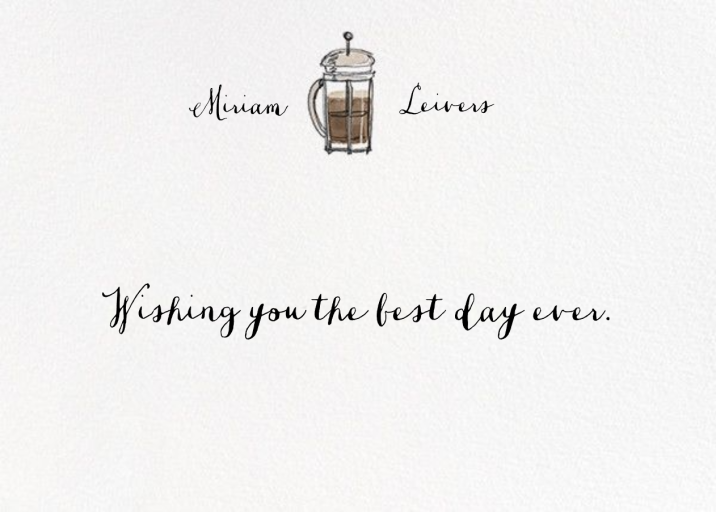 Miriam Leivers
Wishing you the best day ever.